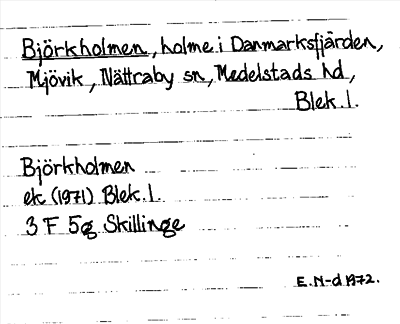 Björkholmen, holme i Danmarksfjärden,
Mjövik, Nättraby sn, Medelstads hd,
Blek. l.
Björkholmen
ek (1971) Blek. l.
3 F 5g Skillinge
E. N-d 1972.